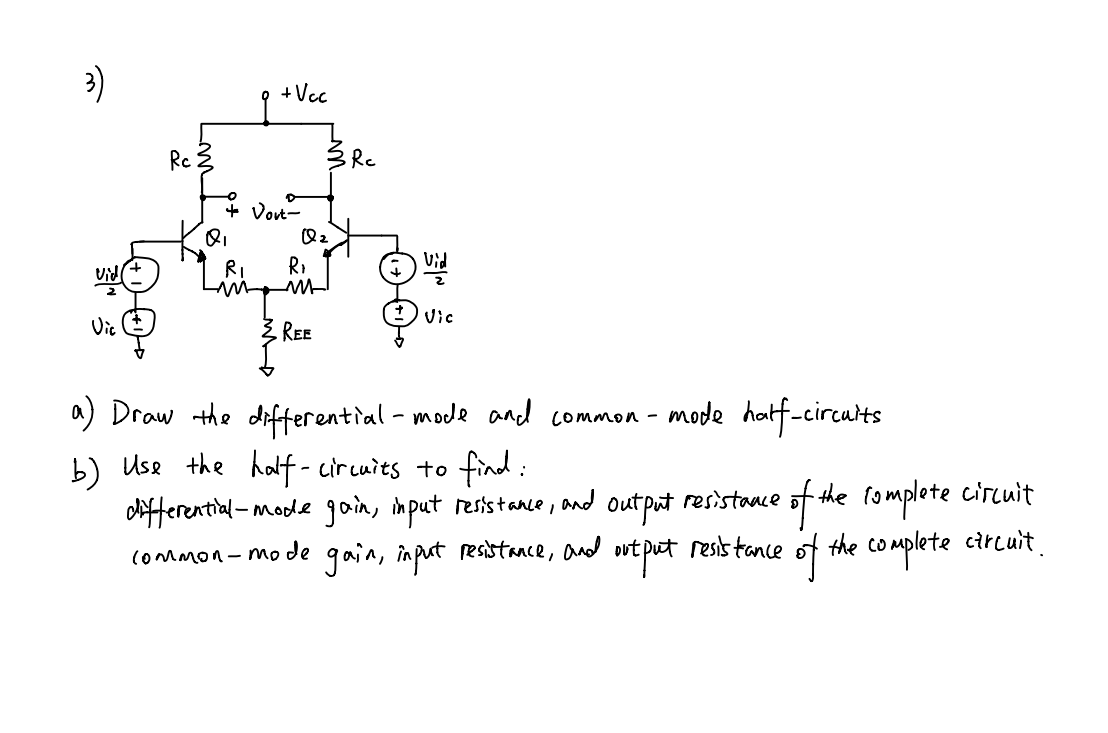 3)
+Vcc
Rc
Rc
+ Vout -
Q1
Q2
R1
R1
Vid/2
+
-
-
+
Vid/2
Vic
+
-
+
-
Vic
REE
a) Draw the differential-mode and common-mode half-circuits
b) Use the half-circuits to find:
differential-mode gain, input resistance, and output resistance of the complete circuit
common-mode gain, input resistance, and output resistance of the complete circuit.